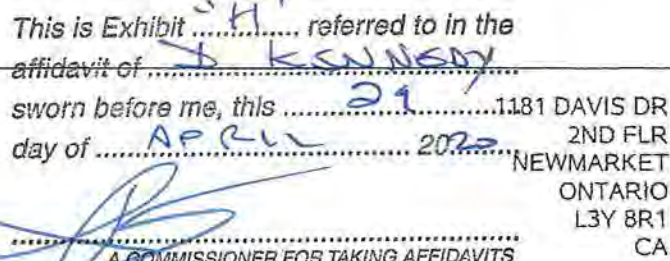 This is Exhibit ..."H"... referred to in the
affidavit of ... D KENNEDY ...
sworn before me, this ... 29 ...
day of ... APRIL ... 2020
A COMMISSIONER FOR TAKING AFFIDAVITS
1181 DAVIS DR
2ND FLR
NEWMARKET
ONTARIO
L3Y 8R1
CA